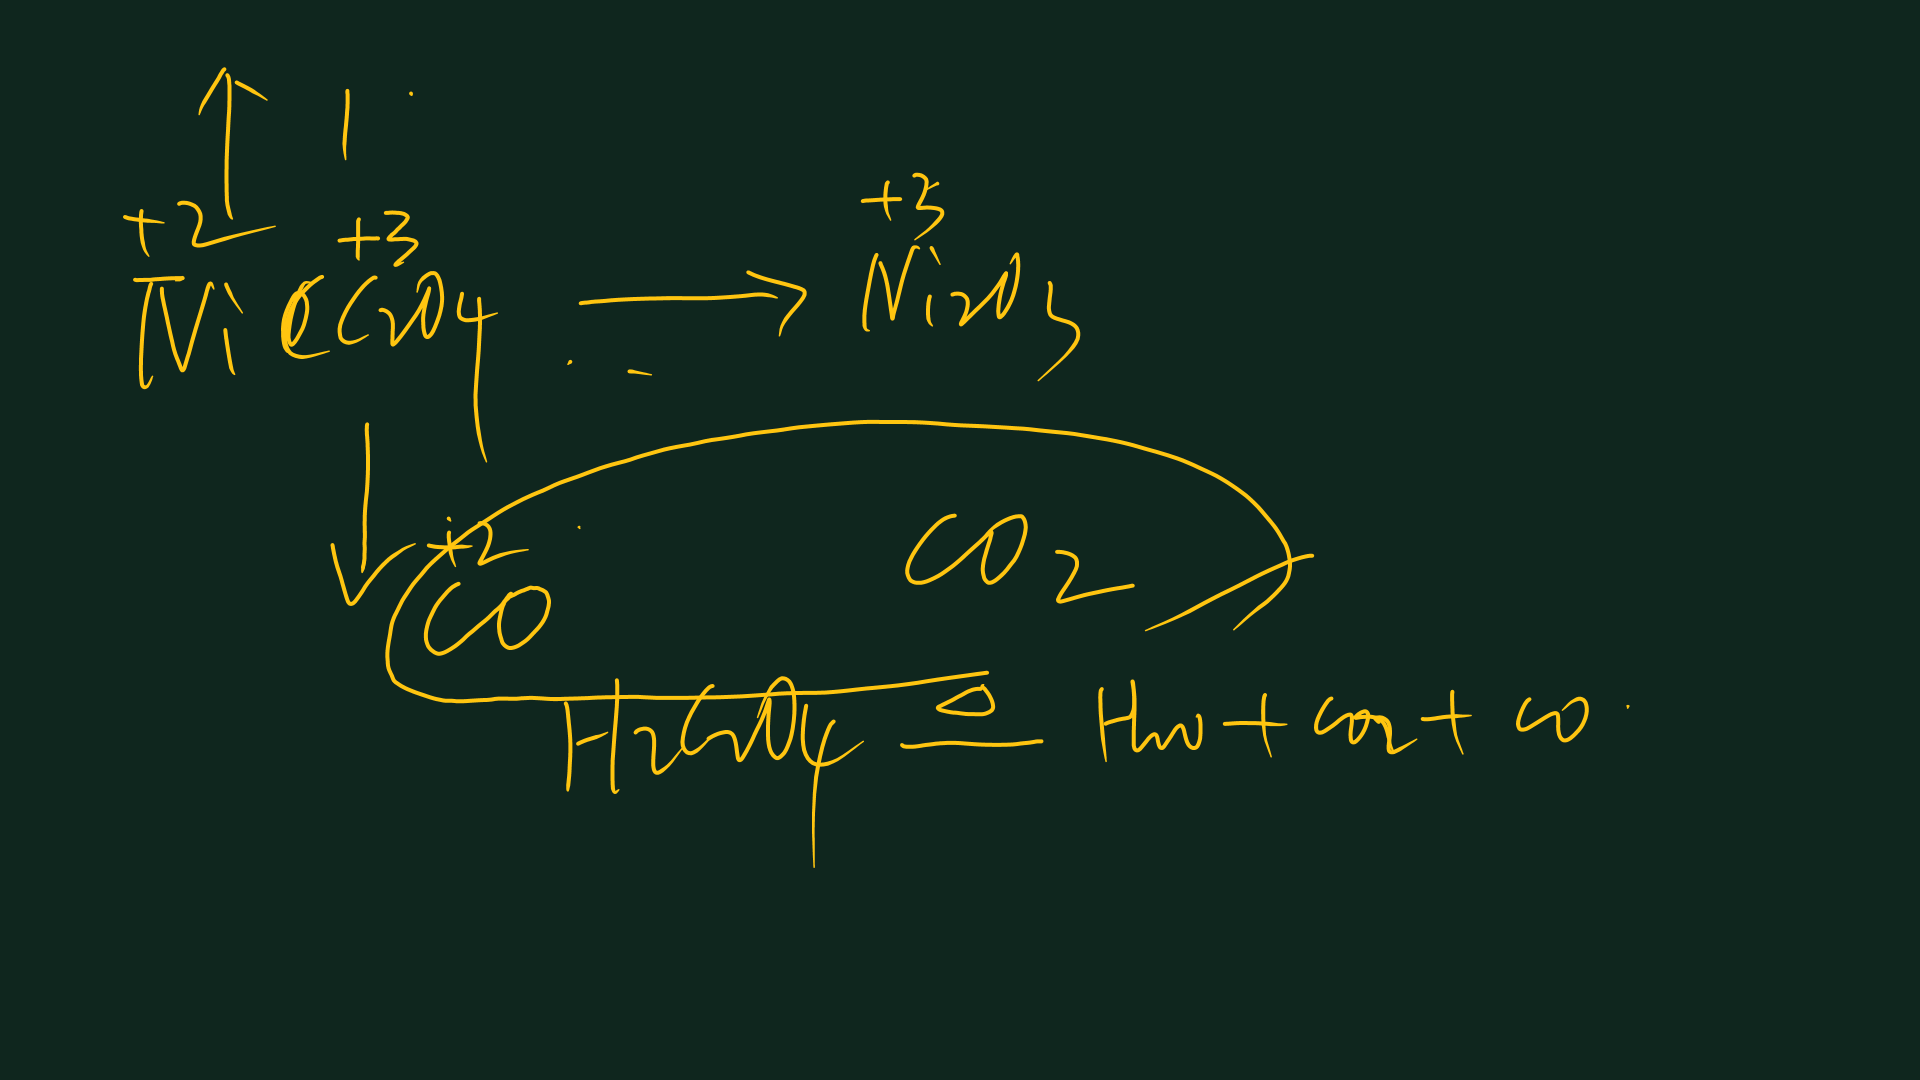 +2 +3 +3
NiC2O4 → Ni2O3
+2
CO CO2
H2C2O4 △ H2O + CO2 + CO